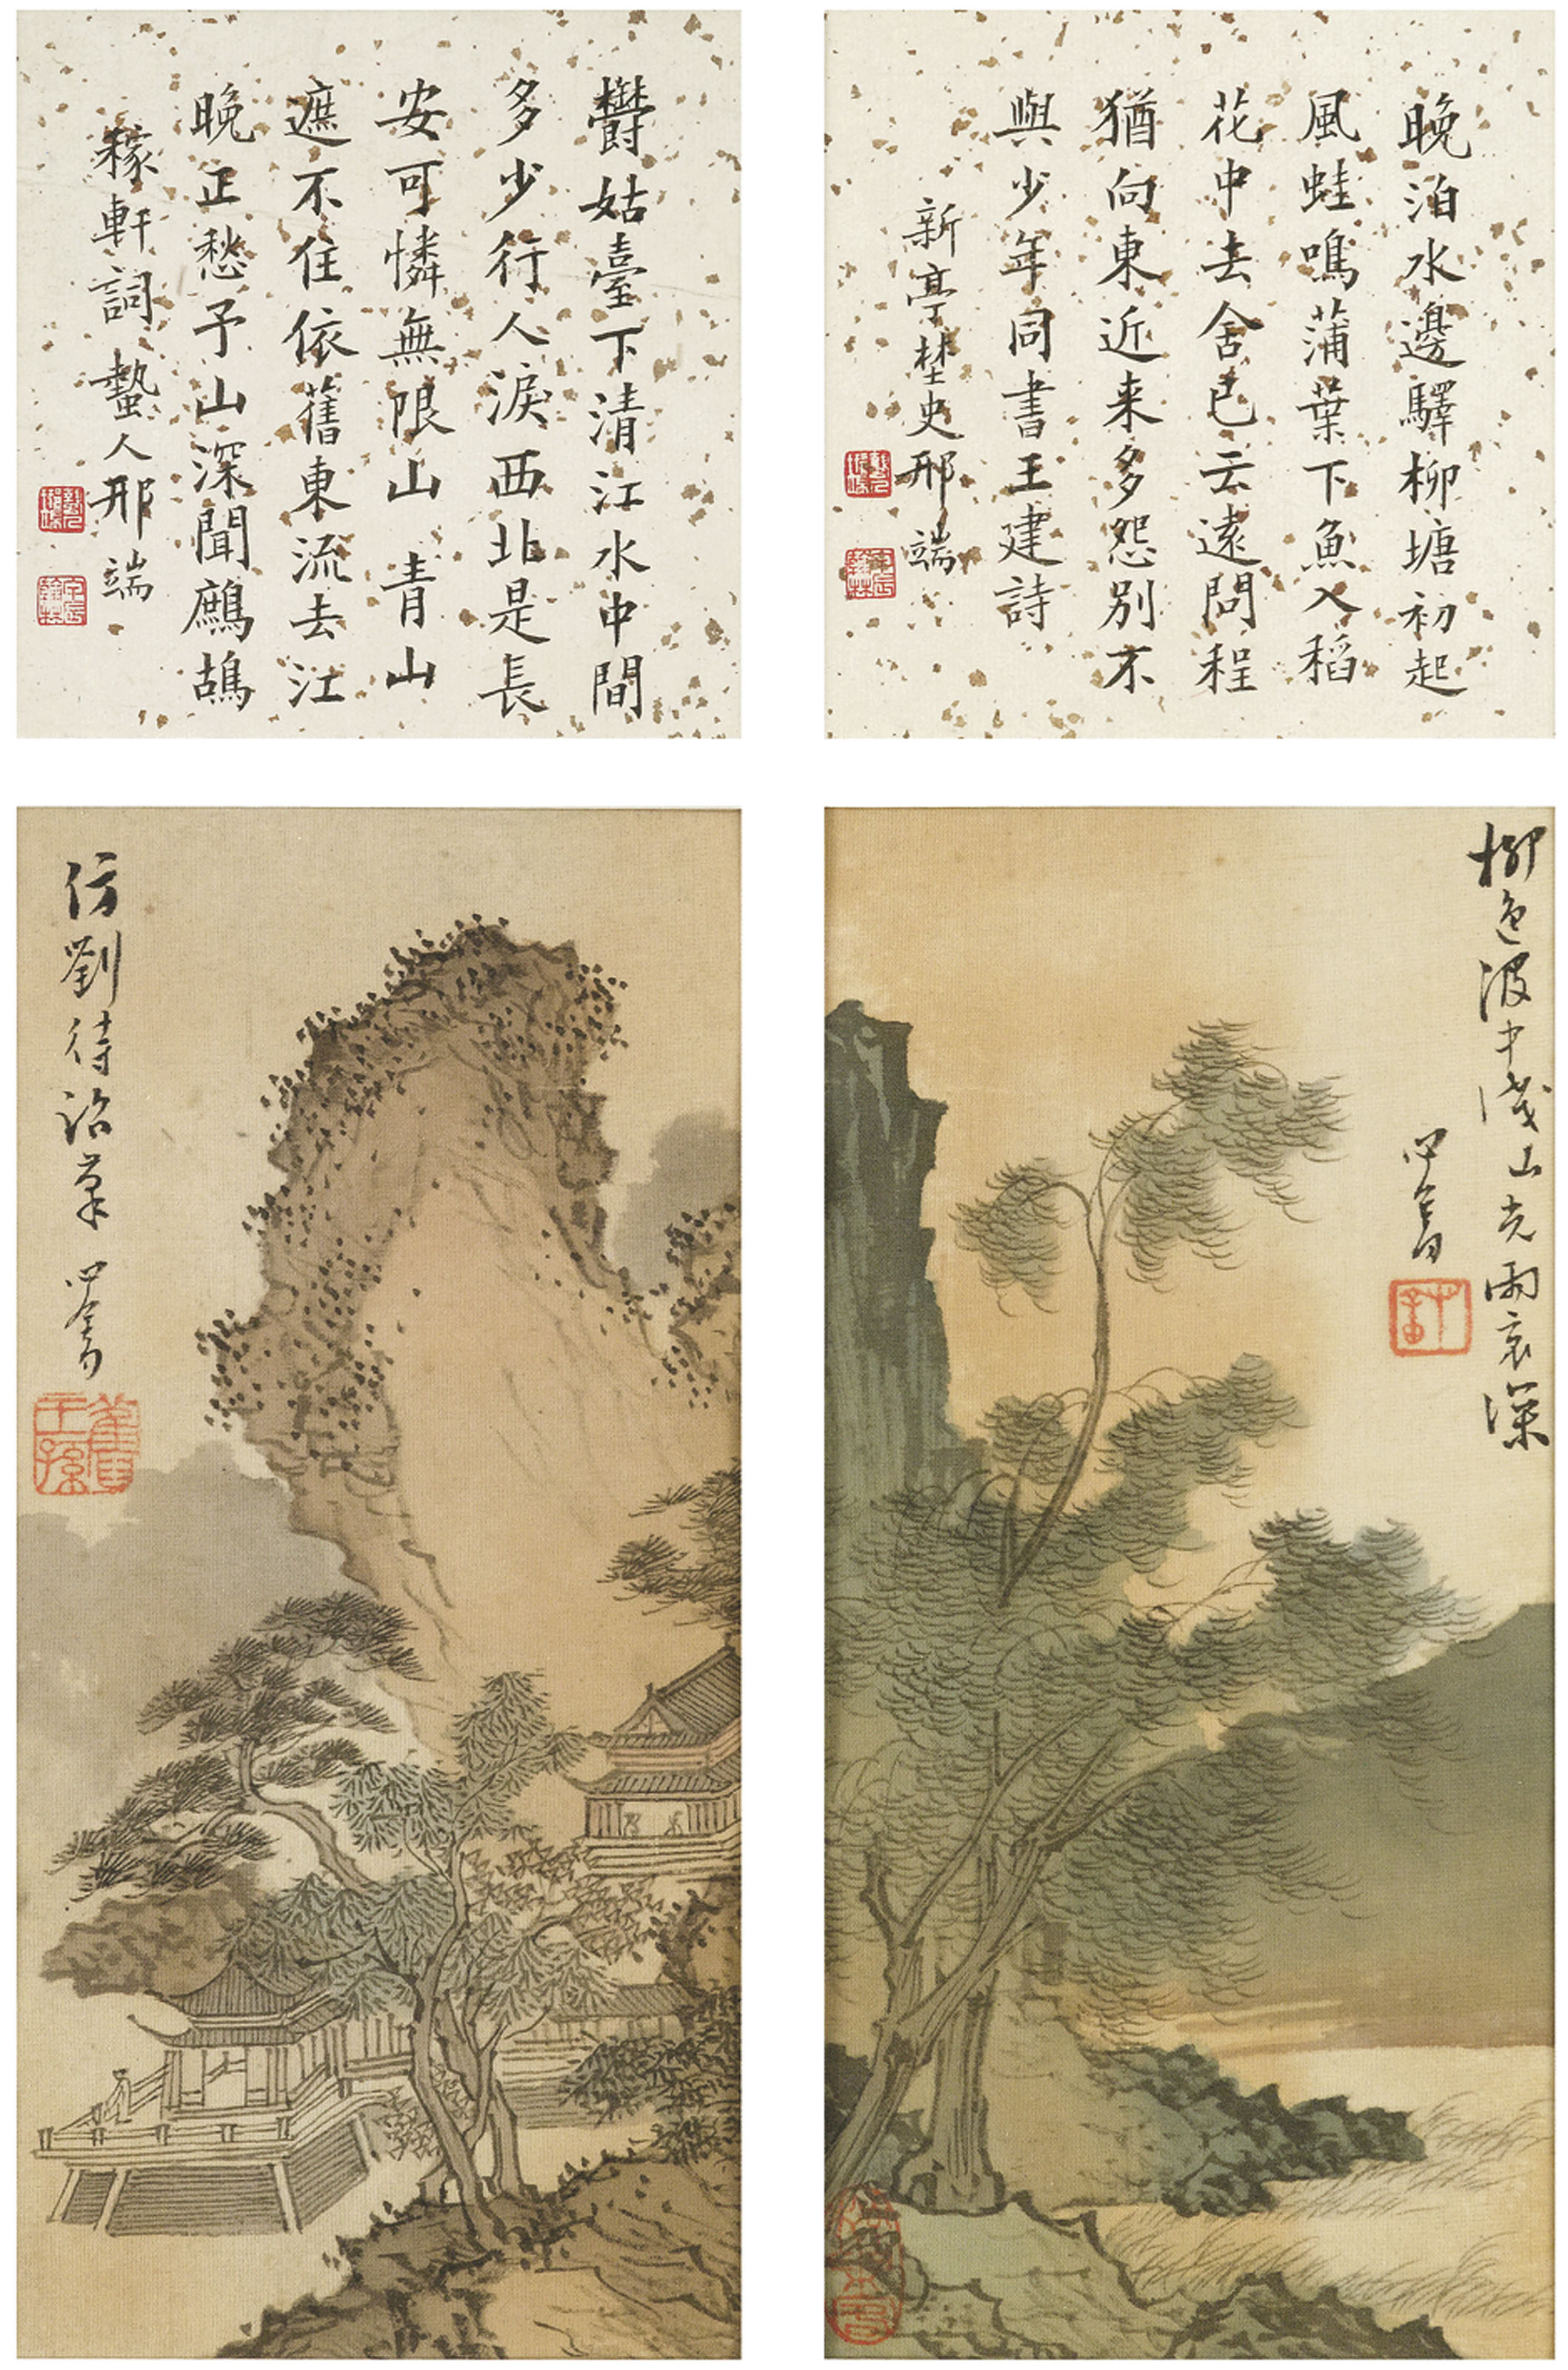 晚泊水邊驛柳塘初起
風蛙鳴蒲葉下魚入稻
花中去舍已云遠問程
猶向東近来多怨別不
與少年同書王建詩
新亭埜史邢端
欝姑臺下清江水中間
多少行人淚西北是長
安可憐無限山 青山
遮不住依舊東流去江
晚正愁予山深聞鷓鴣
稼軒詞 蟄人邢端
柳色波中淺山光雨裏深
心畬
仿劉待詔筆 心畬
舊王孫